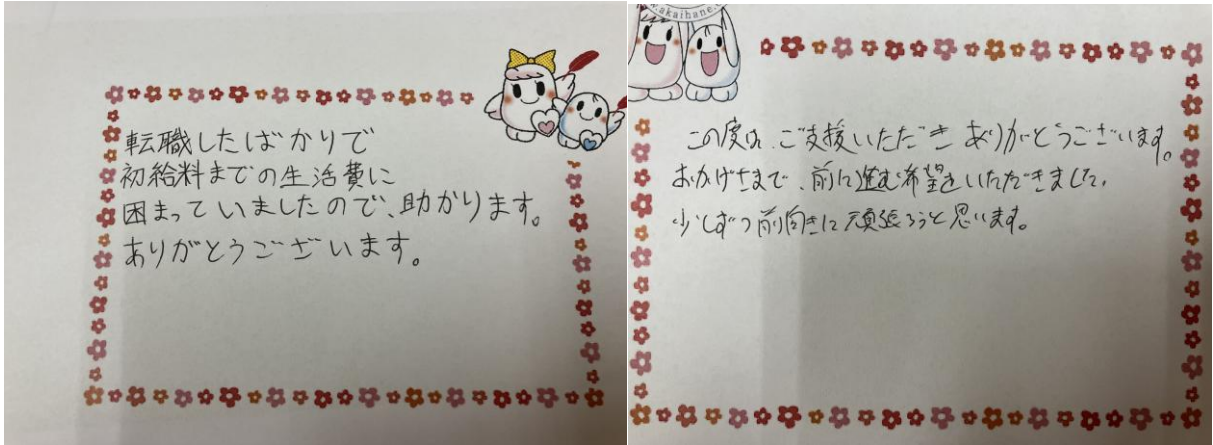 転職したばかりで
初給料までの生活費に
困まっていましたので、助かります。
ありがとうございます。
.akaihane.
この度は、ご支援いただき ありがとうございます。
おかげさまで、前に進む希望をいただきました。
少しずつ前向きに頑張ろうと思います。